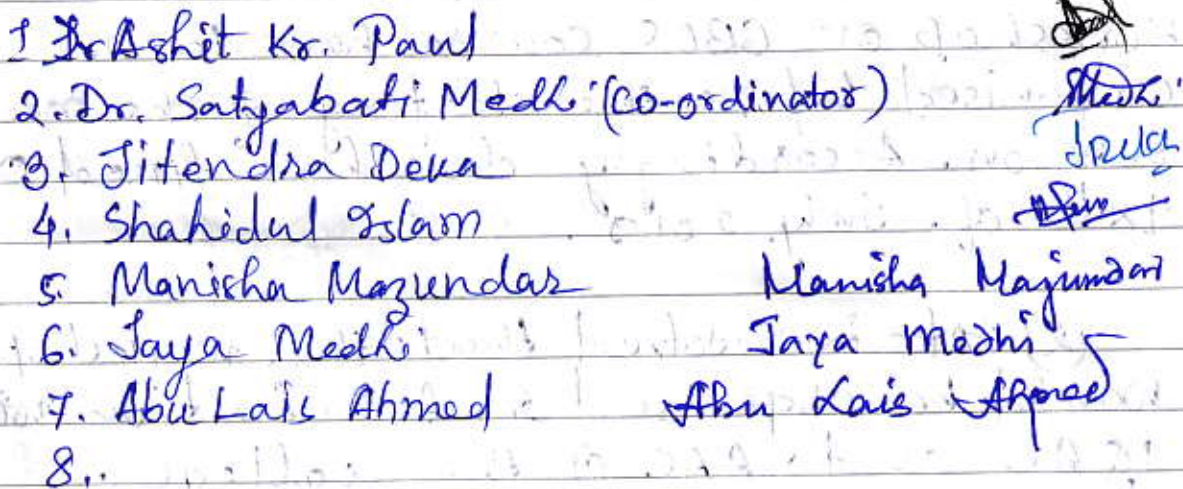 1 Dr Ashit Kr. Paul
2. Dr. Satyabati Medhi (Co-ordinator) Medhi
3. Jitendra Deka JDeka
4. Shahidul Islam
5. Manisha Mazumdar Manisha Majumdar
6. Jaya Medhi Jaya Medhi
7. Abu Lais Ahmed Abu Lais Ahmed
8.